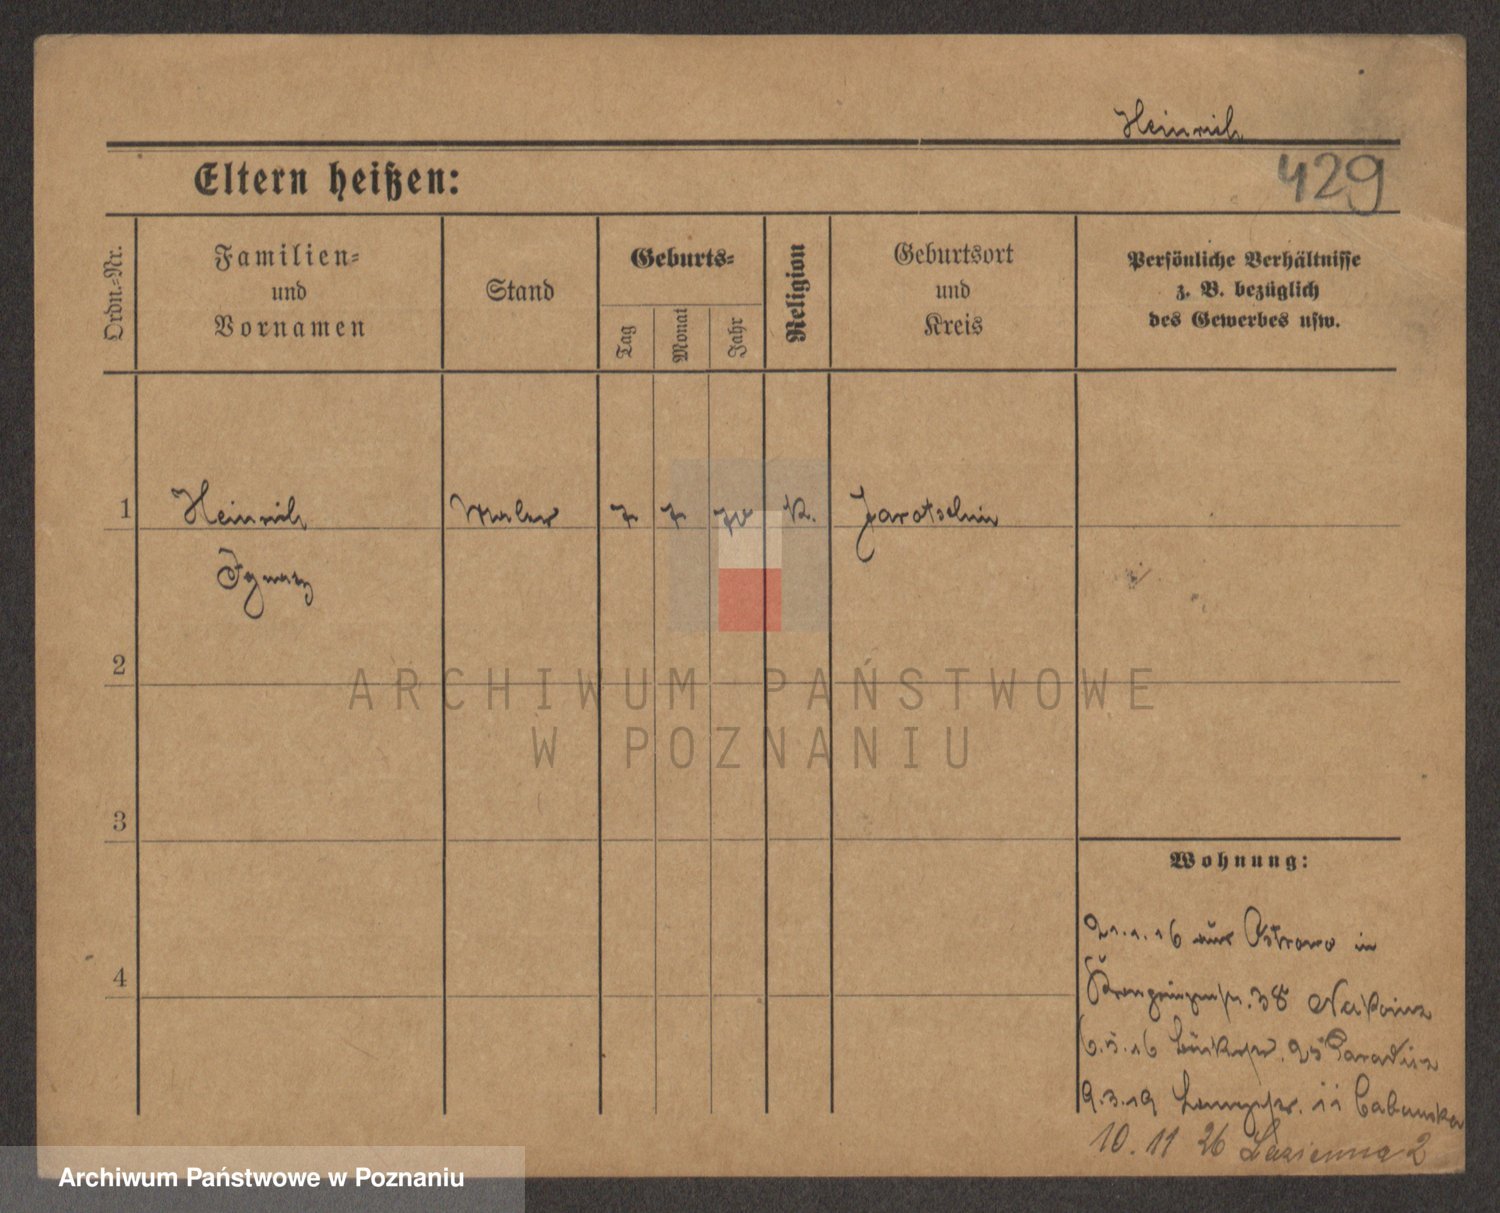 Heinrich
429
Eltern heißen:
Ordn.-Nr.
Familien-
und
Vornamen
Stand
Geburts-
Tag
Monat
Jahr
Religion
Geburtsort
und
Kreis
Persönliche Verhältnisse
z. B. bezüglich
des Gewerbes usw.
1
Heinrich
Maler
7
7
70
K.
Jarotschin
Ignatz
2
3
4
Wohnung:
21.1.16 aus Ostrowo in
Kronprinzenstr. 38
6.5.16 25
9.3.19 11
10.11 26 Łazienna 2
ARCHIWUM PAŃSTWOWE
W POZNANIU
Archiwum Państwowe w Poznaniu